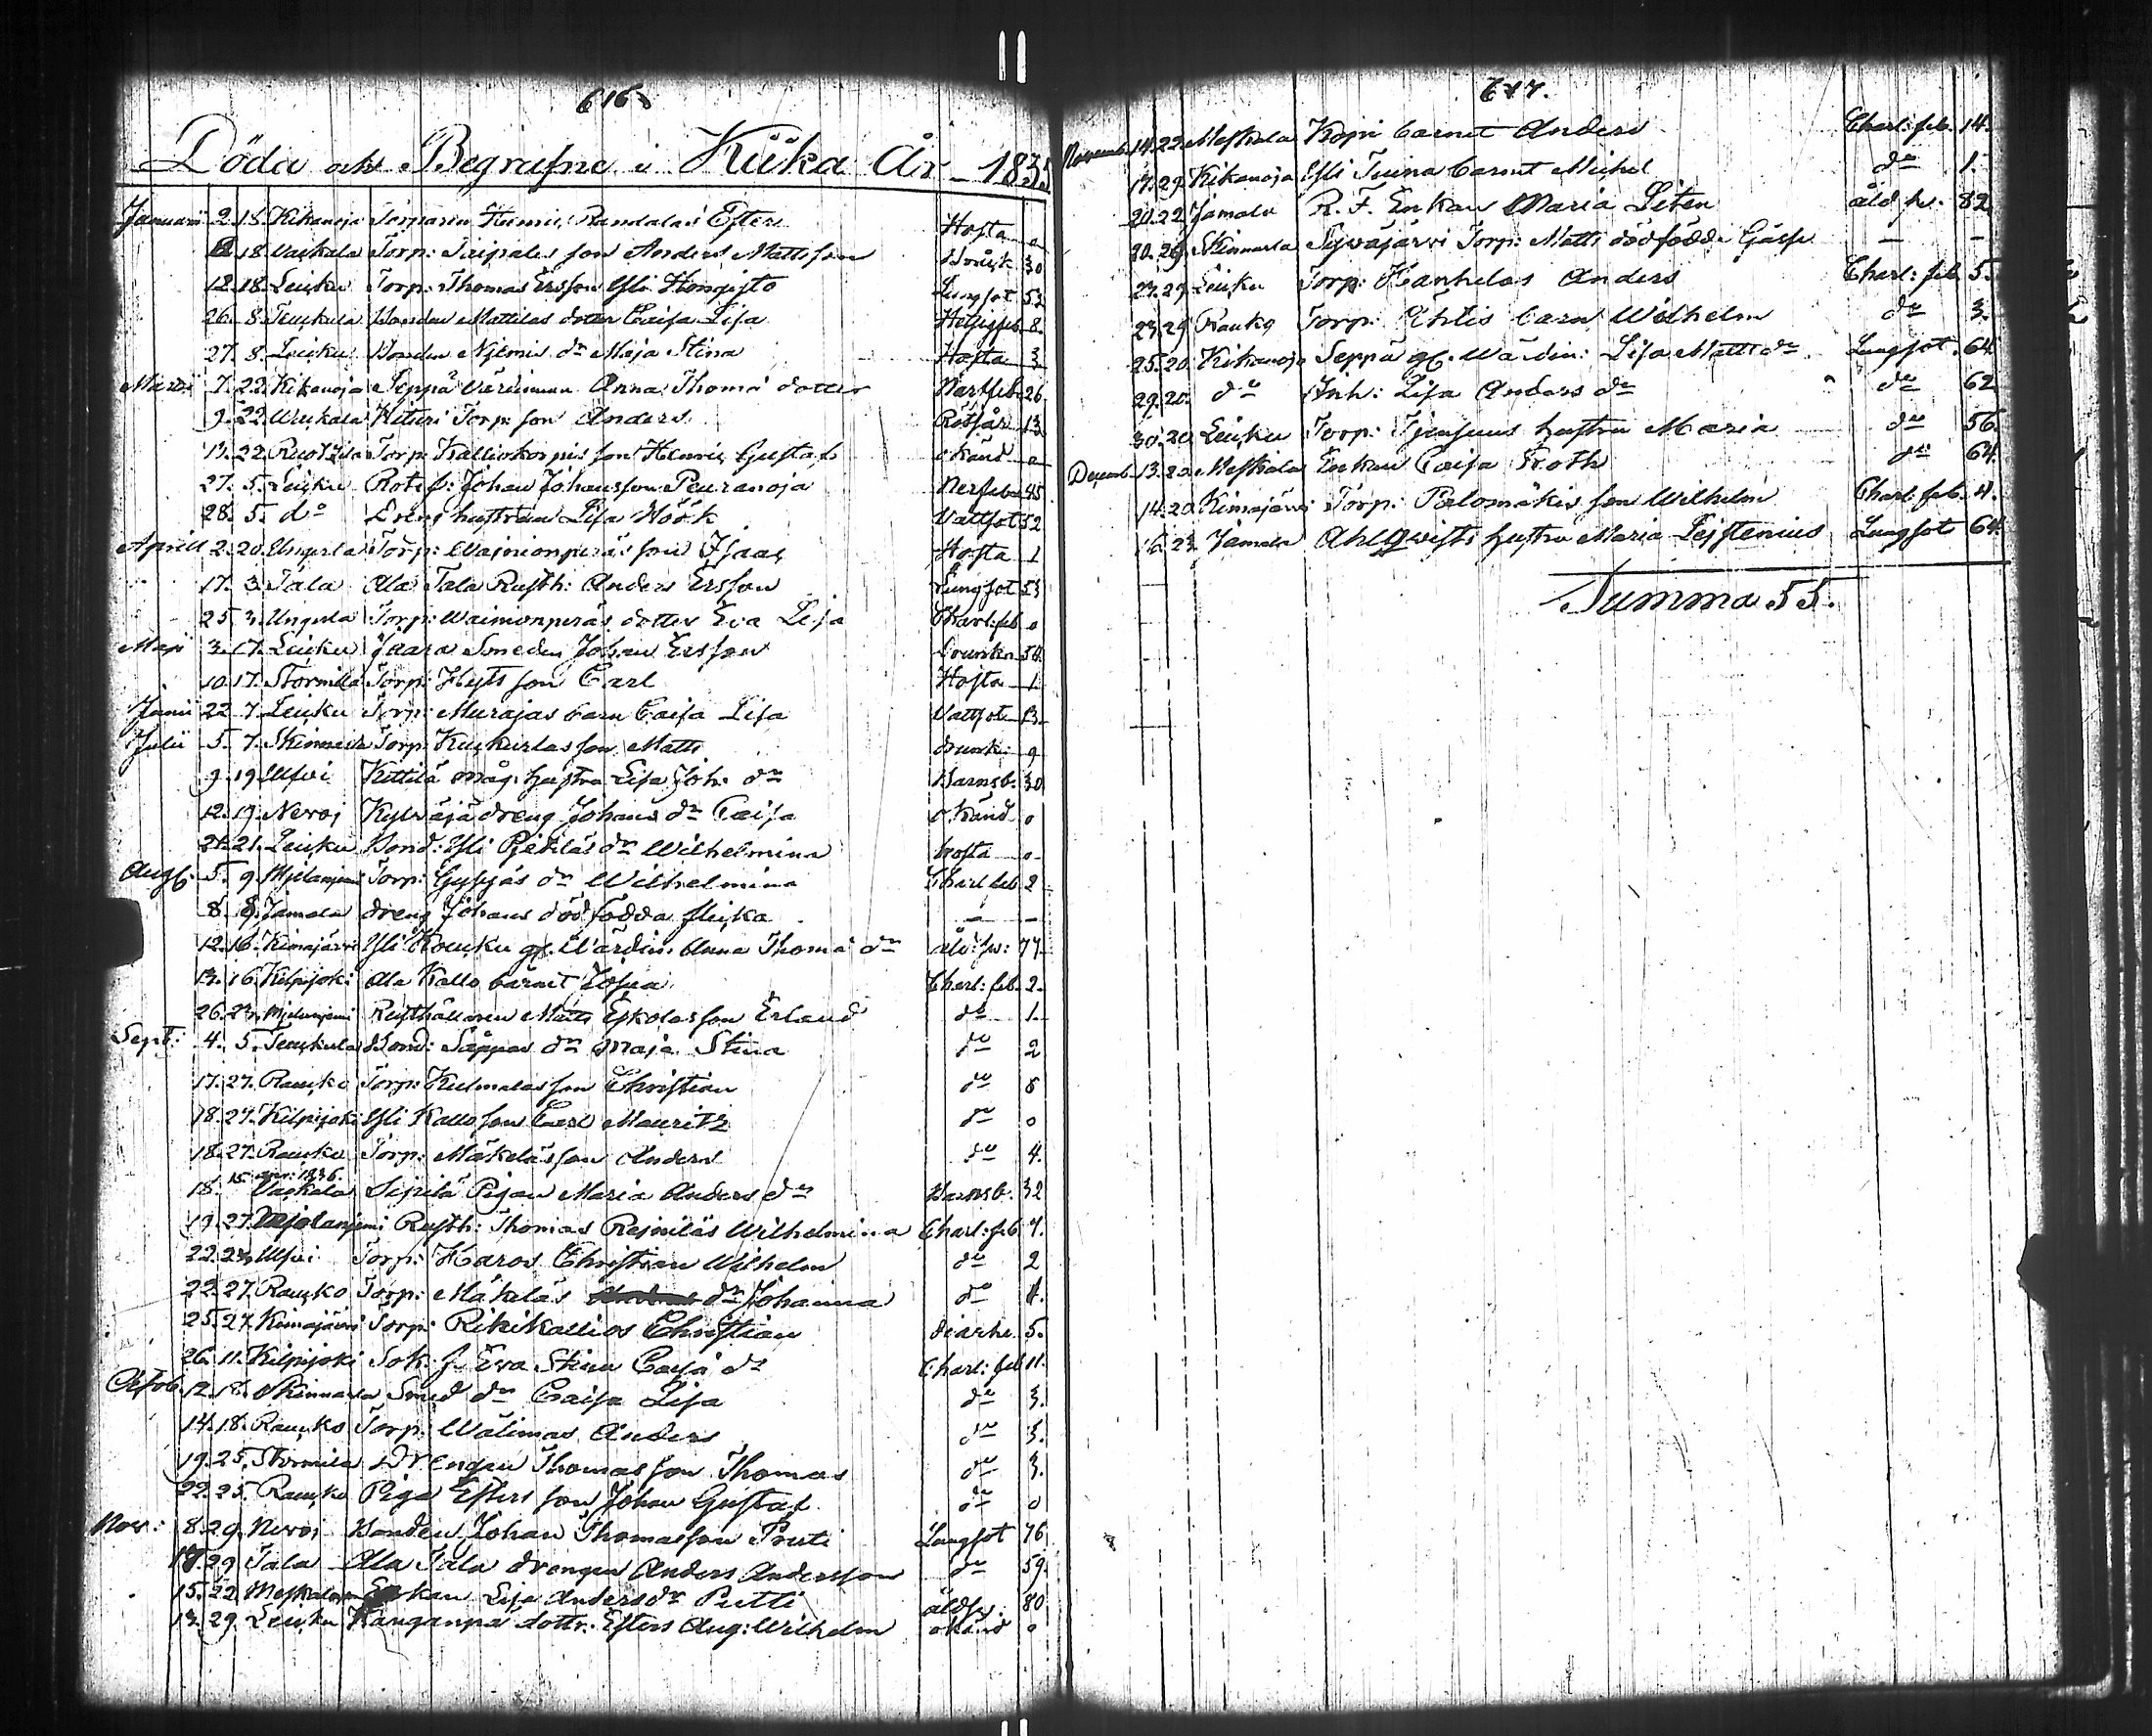 616
Döda och Begrafne i Kiika År 1835
Januarii 2. 18. Kikanoja Torparen Henric Randalas Ester Hosta 0
18. Vaskala Torp: son Anders Mattsson Bröstk 30
12. 18. Leuku Torp: Thomas Ersson Yli Hongisto Lungsot 52
26. 8. Teukula Bonden Mattilas dotter Caisa Lisa Hetsigfeb 8.
27. 8. Leuku Bonden Njemis dr Maja Stina Hosta 3
Martii 7. 22. Kikanoja Seppä Värdinnan Anna Thomæ dotter Närffeb 26
9. 22. Torp: son Anders Rötfår 13
13. 22. Torp: Kalliokorpis son Henric Gustaf okänd 0
27. 5. Leuku Rote b: Johan Johansson Peuranoja Nerffeber 45
28. 5. do Dreng hustrun Lisa Höök Vattsot 52
Aprill 2. 20. Ungerla Torp: Wainionperäs son Isaac Hosta 1
17. 3. Tala Ala Tala Rusth: Anders Ersson Lungsot 53
25. 3. Ungerla Torp: Wainionperäs dotter Eva Lisa Charl: feb 0
Maji 3. 17. Leuku Jaara Smeden Johan Ersson 54
10. 17. Stormilla Torp: son Carl Hosta 1
Junii 22. 7. Leuku Torp: Murajas barn Caisa Lisa Vattsot 13
Julii 5. 7. Skinnarla Torp: Kuckurlas son Matts drunk: 9
9. 19. Ufvi Kittilä måg: hustru Lisa Joh: dr Barnsb. 30
12. 19. Nevoj Kylväjä dreng Johans dr Caisa okänd 0
21. 21. Leuku Bond: Yli Pjetiläs dr Wilhelmina hosta 0
Aug: 5. 9. Torp: dr Wilhelmina Charl feb. 2
8. 9. Jamala dreng Johans död födda flicka — —
12. 16. Kimajärvi Yli Kouku gl. Värdin: Anna Thomæ dr åld: sv: 77
13. 16. Kilpijoki Ala Kallo barnet Josua Charl: feb. 2.
26. 23. Rusthållaren Matts Eskolas son Erland do 1.
Sept: 4. 5. Teukula Bond: Säppas dr Maja Stina do 2
17. 27. Rauko Torp: Kulmalas son Christian do 8
18. 27. Kilpijoki Yli Kallo son Carl Mauritz do 0
18. 27. Rauko Torp: Mäkeläs son Anders do 4.
18. 15 1836. Vaskala Sipilä Pigan Maria Anders dr Barnsb: 32
19. 27. Rusth: Thomas Rejniläs Wilhelmina Charl: feb 7.
22. 23. Ufvi Torp: Karos Christian Wilhelm do 2
22. 27. Rauko Torp: Mäkeläs dr Johanna do 4.
25. 27. Kimajärvi Torp: Rikikallios Christian diarhe 5.
26. 11. Kilpijoki Sok. f. Eva Stina Caisa dr Charl: feb 11.
Octob 12. 18. Skinnarla Smed dr Caisa Lisa do 3.
14. 18. Rauko Torp: Wälimas Anders do 3.
19. 25. Stormila Drengen Thomas son Thomas do 3.
22. 25. Rauko Piga Esters son Johan Gustaf do 0
Nov: 8. 29. Nevoj Bonden Johan Thomasson Prusti Lungsot 76
18. 29 Tala Ala Tala drengen Anders Andersson do 59
15. 22. Meskala Enkan Lisa Anders dr Putti åld sv: 80
13. 29. Leuku Kangaspä dottr: Esters Aug: Wilhelm okänd 0
617.
Novemb 14. 22. Meskala Kopri barnet Anders Charl: feb. 14.
17. 29. Kikanoja Yli Tuina barnet Michel do 1.
20. 22. Jamala R. F. Enkan Maria Liten åld sv. 82
20. 29. Skinnarla Syväjärvi Torp: Matts dödfödde Gåsse — —
23. 29. Leuku Torp: Kanhelas Anders Charl: feb 5.
23. 29. Rauko Torp: Ahlis barn Wilhelm do 3.
25. 20. Kikanoja Seppä gl. Wärdin: Lisa Matts dr Lungsot 64
29. 20. do Inh: Lisa Anders dr do 62
30. 20. Leuku Torp: hustru Maria do 56.
Decemb 13. 20. Meskala Enkan Caisa Kroth do 64.
14. 20. Kimajärvi Torp: Palomäkis son Wilhelm Charl: feb. 4.
16. 23. Jamala Ahlqvists hustru Maria Lejstenius Lungsot 64.
Summa 55.